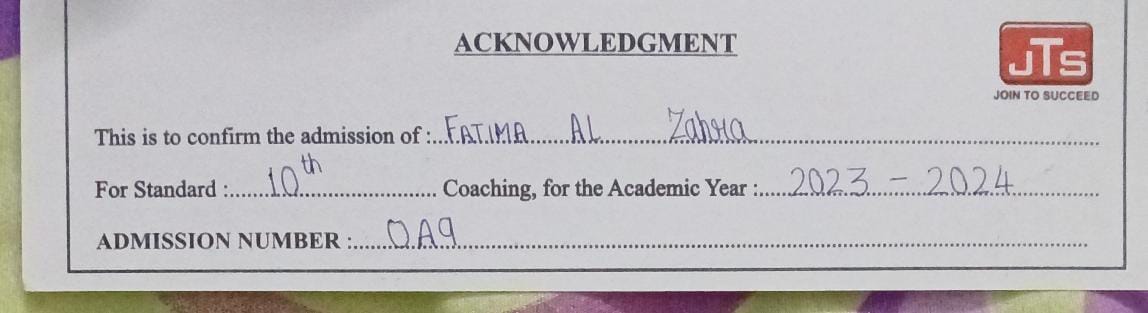 ACKNOWLEDGMENT
JTS
JOIN TO SUCCEED
This is to confirm the admission of :...FATIMA......AL............Zahra......
For Standard :......10th...................... Coaching, for the Academic Year :.....2023 - 2024......
ADMISSION NUMBER :......OA9......